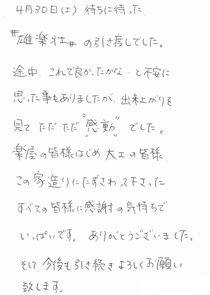 4月30日(土) 待ちに待った
"雄楽荘"の引き渡しでした。
途中 これで良かったかな…と不安に
思った事もありましたが、出来上がりを
見て ただただ"感動"でした。
楽屋の皆様はじめ 大工の皆様
この家造りにたずさわって下さった
すべての皆様に感謝の気持ちで
いっぱいです。ありがとうございました。
そして今後も引き続きよろしくお願い
致します。